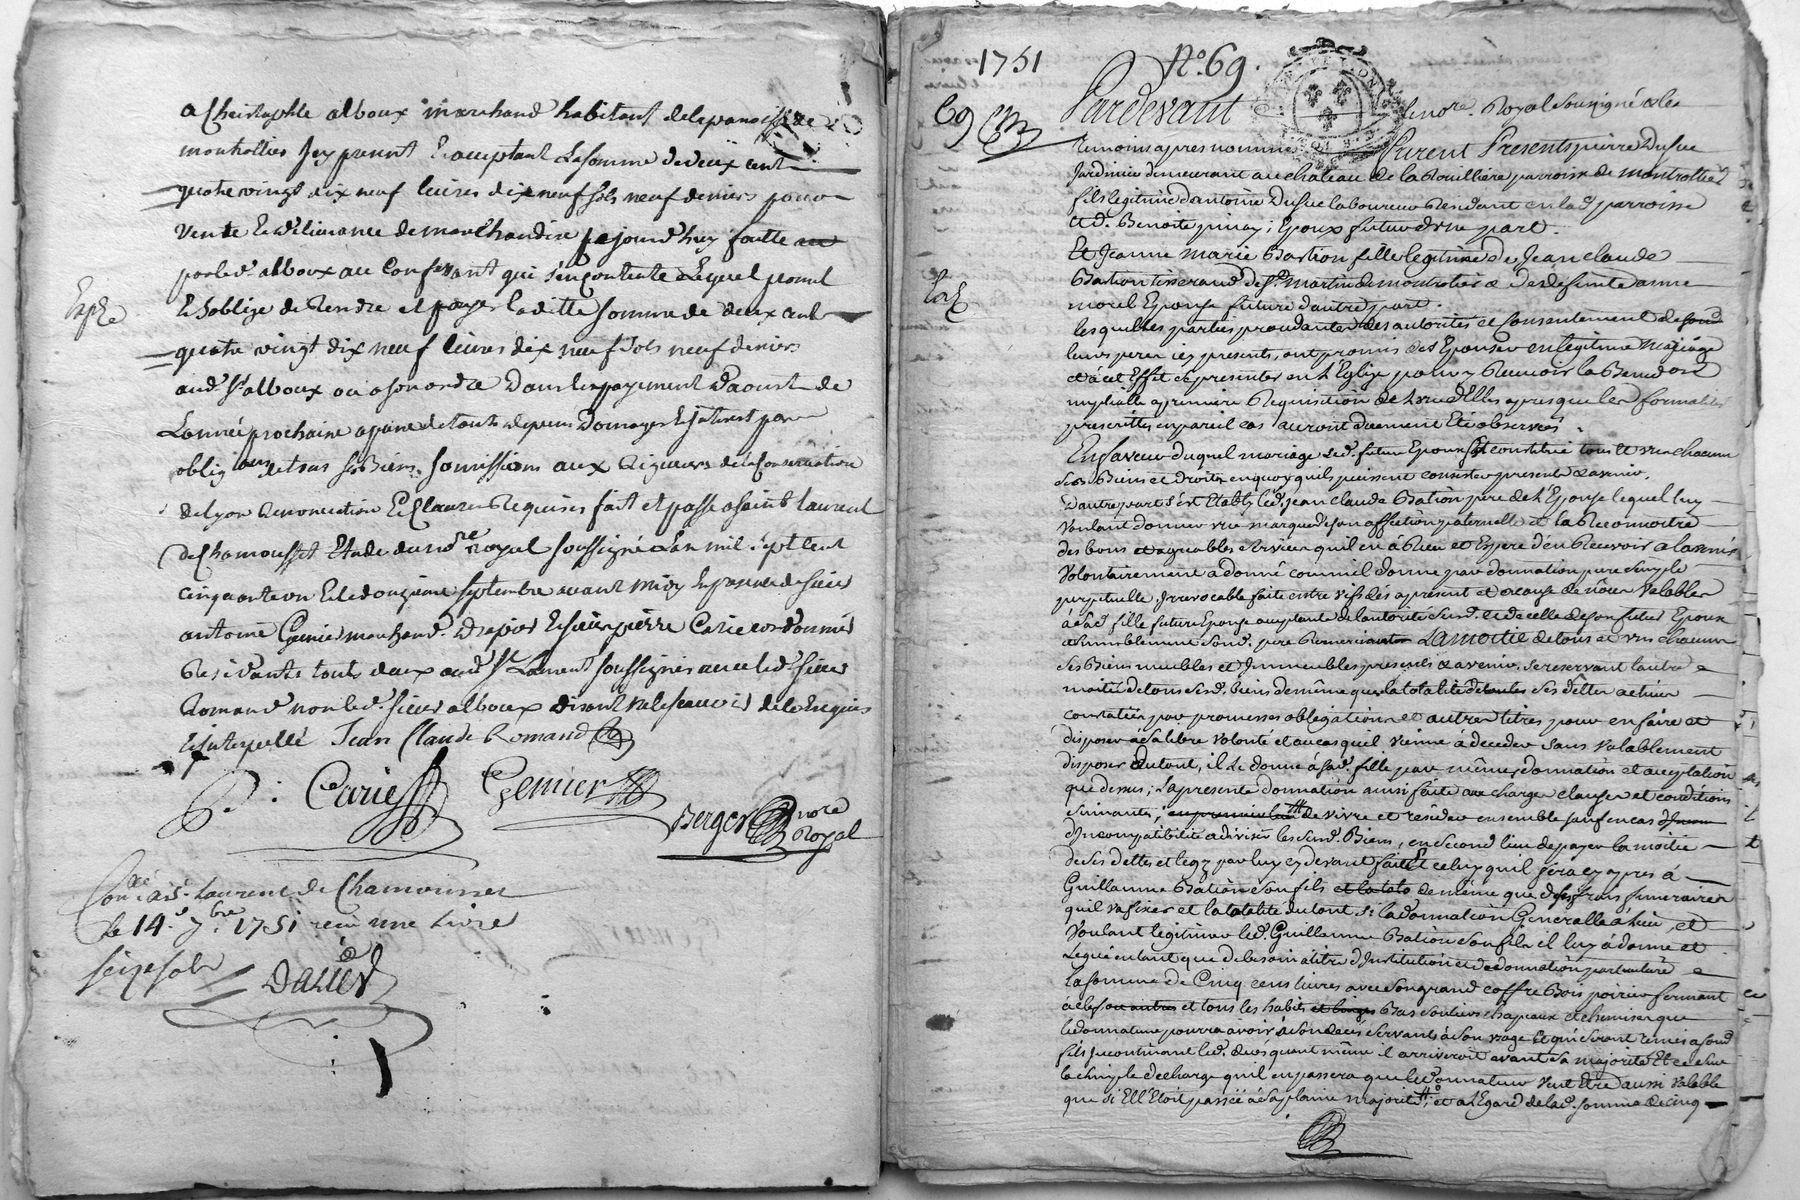 a Christophle alboux marchand habitant de la paroisse de
montrottier Icy present Et acceptant La somme de deux cent
quatre vingt dix neuf livres dix neuf sols neuf deniers pour
Vente Et delivrance de marchandise ce jourd'huy faitte
par led. alboux au Confessant qui s'en contente Lequel promet
Et s'oblige de Rendre et payer la ditte somme de deux cent
Exp.
quatre vingt dix neuf livres dix neuf sols neuf deniers
aud. Sr alboux ou a son ordre Dans le payement D'aoust de
L'année prochaine a peine de touts depens Domages Et Interest par
obligaon de tous ses Biens, somissions aux Rigueurs de la Conservation
de Lyon Renonciation Et Clauses Requises fait et passé a saint Laurent
de Chamousset Etude du nore Royal soussigné L'an mil sept cent
cinquante un Et le douzieme septembre avant midy En presence de sieur
antoine Genier marchand Drapier Et sieur pierre Carie cordonnier
Residants touts deux aud. St Laurent soussignés avec led. sieur
Romand non led. sieur alboux disant ne le scavoir de ce Enquis
Et Interpellé Jean Claude Romand
P. Carie Genier
Berger nore Royal
Conllé a St. Laurent de Chamousset
le 14e 7bre 1751 reçu une Livre
seize sols
1751 No. 69.
69
Pardevant le nore. Royal soussigné & les
temoins apres nommés furent Presents pierre Dusuc
Jardinier demeurant au chateau de la Rouilliere parroisse de montrottier
fils legitime d'antoine Dusuc laboureur Residant en lad. parroisse
et d. Benoite pinay; Epoux futur d'une part.
Et Jeanne Marie Bastion fille legitime de Jean claude
Bastion tisserand de St. martin de montrotier & de deffunte anne
morel Epouse future d'autre part.
lesquelles parties procedantes des autorités et consentement de
leurs peres icy presents, ont promis de s'Epouser en legitime Mariage
et à cet Effet se presenter en L'Eglise pour y Recevoir la Benedion
nuptialle a premiere Requisition de L'une d'Elles apres que les formalités
prescrittes en pareil cas auront duement Eté observées.
En faveur duquel mariage led. futur Epoux s'est constitué tous et un chacuns
ses Biens et Droits en quoy qu'ils puissent consister presents & avenir.
D'autre part s'est Etably led. Jean claude Bation pere de L'Epouse lequel luy
Voulant donner une marque de son affection paternelle et la Reconnoitre
des bons et agreables services qu'il en à Reçu et Espere d'en Recevoir a lavenir
Volontairement a donné comme il donne par donnation pure simple
perpetuelle Irrevocable faite entre vifs des apresent et &
à sad. fille future Epouse acceptante de l'autorité
La moitié de tous et uns chacuns
ses Biens meubles et Immeubles presents & avenir, se reservant l'autre
moitié de tous sesd. biens de même que la totalité de toutes ses dettes actives
constatées par promesses obligations et autres titres pour en faire et
disposer à sa libre Volonté et au cas qu'il vienne à deceder sans valablement
disposer du tout, il Le donne à sad. fille par même donnation et acceptation
que dessus; La presente donnation ainsi faite aux charges clauses et conditions
suivantes; de vivre et résider ensemble sauf en cas
d'Incompatibilité a diviser lesd. Biens, en second lieu de payer la moitié
de ses dettes et legs par luy cy devant faits Et celuy qu'il fera cy apres à
Guillaume Bation son fils de même que de ses frais funeraires
et la totalité du tout si la donnation Generalle à Lieu, et
Voulant legitimer led. Guillaume Bation son fils il luy à donné et
Legué en tant que de besoin a titre d'Institution et de donnation particuliere
la somme de Cinq cens livres avec son grand coffre Bois poirier fermant
à clef et tous les habits Bas souliers chapeaux et chemises que
le donnateur pourra avoir à son deces servants à son usage et qui seront remis a sond.
fils incontinant led. deces quant même il arriveroit avant sa majorité Et ce sur
la simple decharge qu'il en passera que led. donnateur veut Etre aussi valable
que si Elle Etoit passée à sa pleine majorité; et a L'Egard de lad. somme de cinq